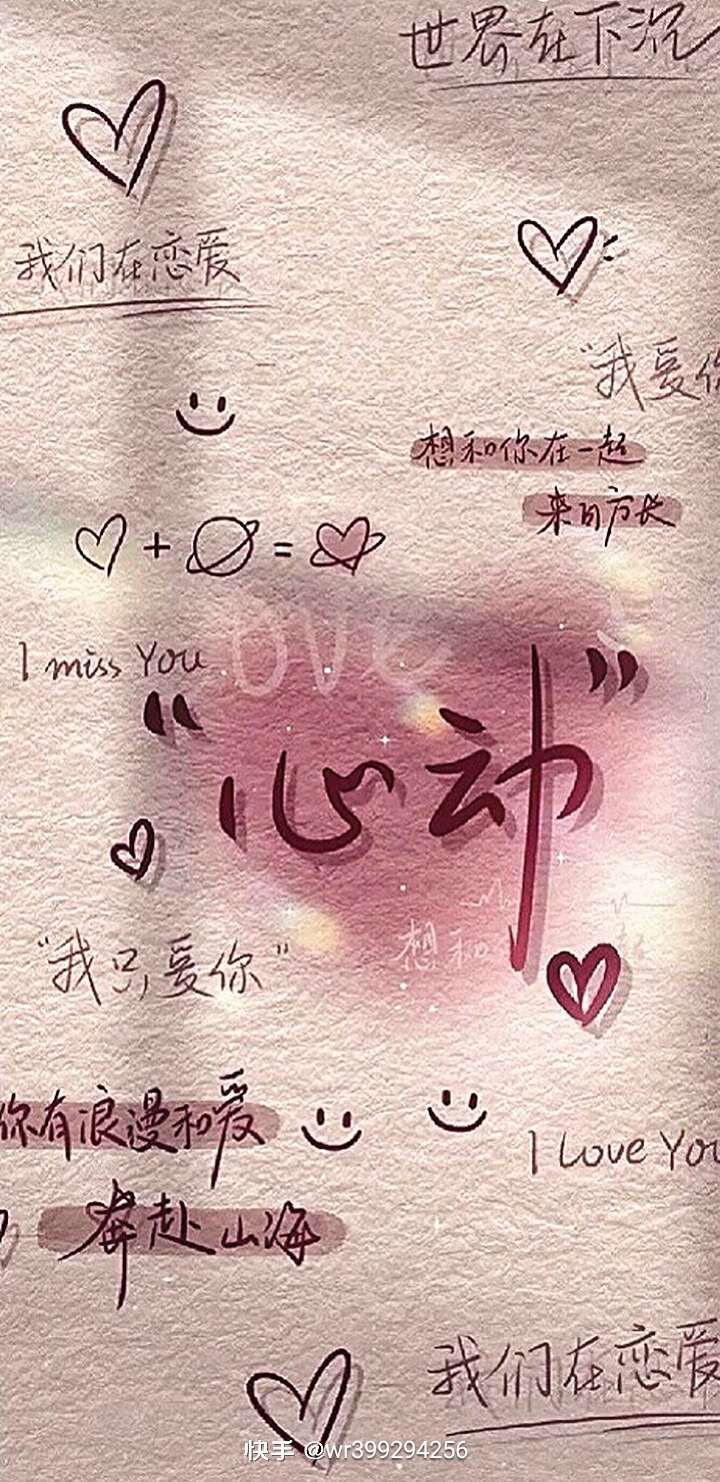 世界在下沉
我们在恋爱
"我爱你
想和你在一起
来日方长
♡ + = 
Love
I miss You
"心动"
想和
"我只爱你"
你有浪漫和爱
I Love You
奔赴山海
我们在恋爱
快手 @wr399294256